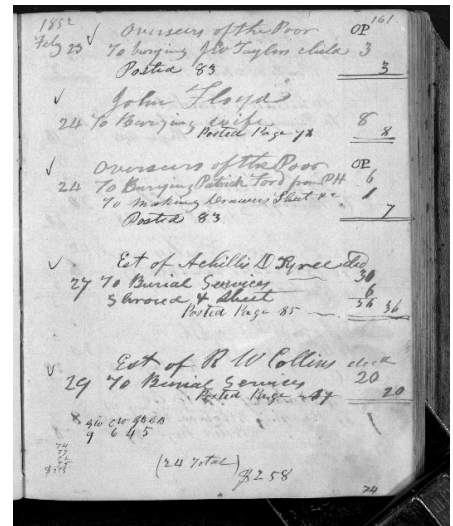 1852 161
✓ Overseers of the Poor OP
Feby 23 To burying Jno Taylors child 3
Posted 83 3
✓ John Floyd
24 To Burying wife 8
Posted Page 8
✓ Overseers of the Poor OP
24 To Burying Patrick Ford from PH 6
To making Drawers Sheet &c 1
Posted 83 7
✓ Est of Achillis D Tyree decd
27 To Burial Services 30
Shroud & Sheet 6
36 36
Posted Page 85
Est of R W Collins decd
✓ 29 To Burial Services 20
Posted Page 20
9 6 4 5
(24 Total)
$258
74